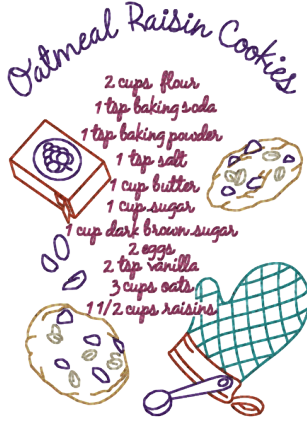 Oatmeal Raisin Cookies
2 cups flour
1 tsp baking soda
1 tsp baking powder
1 tsp salt
1 cup butter
1 cup sugar
1 cup dark brown sugar
2 eggs
2 tsp vanilla
3 cups oats
1 1/2 cups raisins